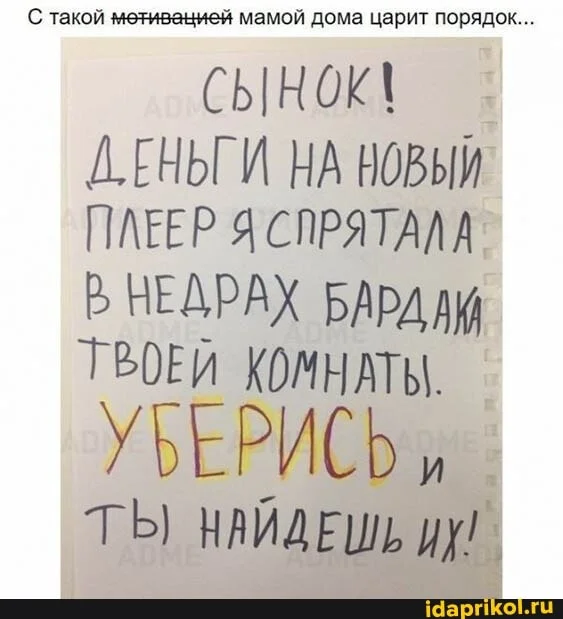 С такой мотивацией мамой дома царит порядок...
СЫНОК!
ДЕНЬГИ НА НОВЫЙ
ПЛЕЕР Я СПРЯТАЛА
В НЕДРАХ БАРДАКА
ТВОЕЙ КОМНАТЫ.
УБЕРИСЬ и
ТЫ НАЙДЕШЬ ИХ!
idaprikol.ru